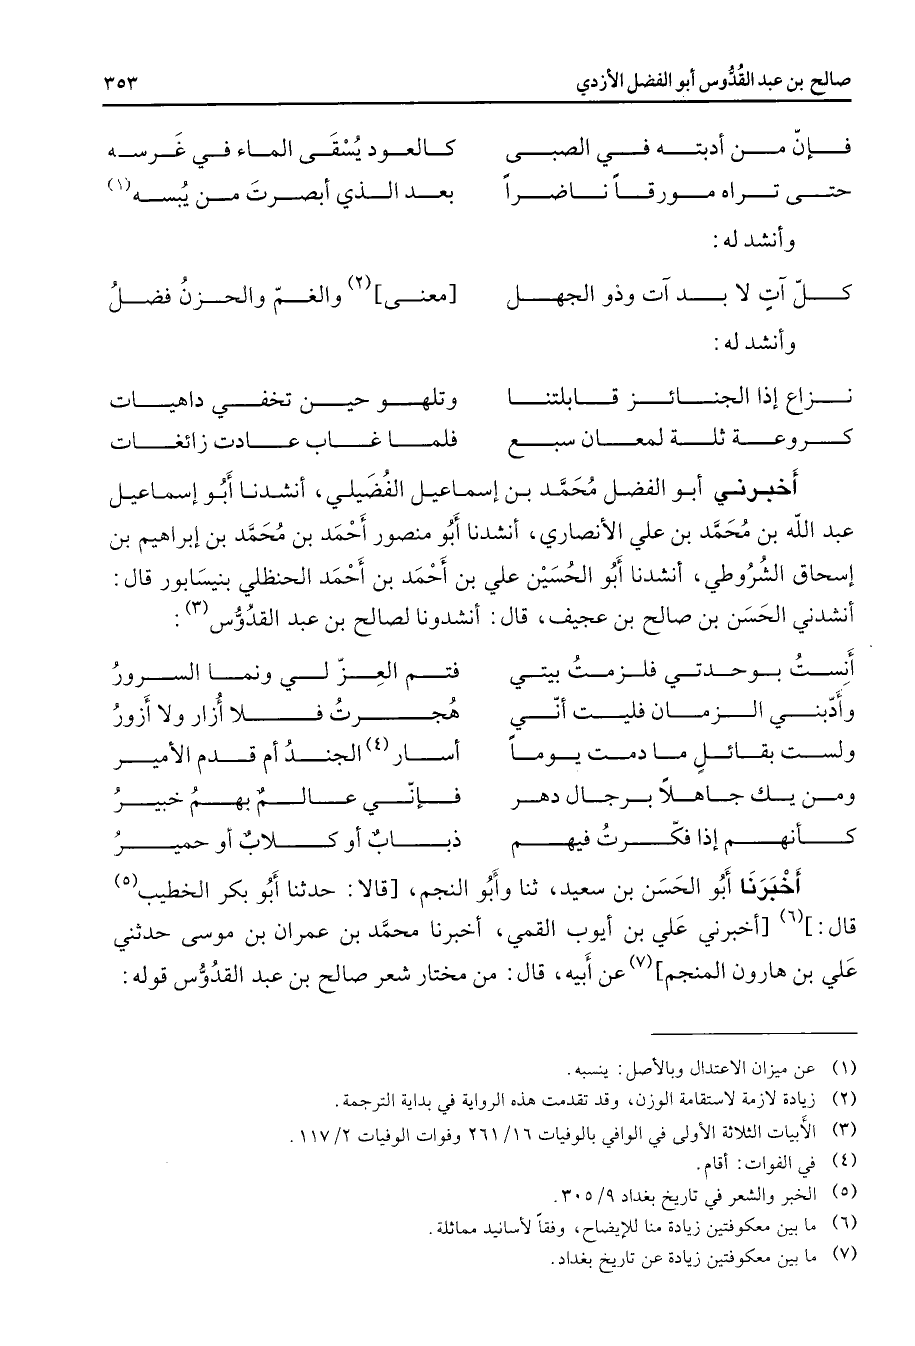 صالح بن عبد القُدُّوس أبو الفضل الأزدي ٣٥٣
فإنّ من أدبته في الصبى كالعود يُسْقَى الماء في غَرسه
حتى تراه مورقاً ناضراً بعد الذي أبصرتَ من يُبسه(١)
وأنشد له :
كلّ آتٍ لا بد آت وذو الجهل [معنى](٢) والغمّ والحزنُ فضلُ
وأنشد له :
نزاع إذا الجنائز قابلتنا وتلهو حين تخفي داهيات
كروعة ثلة لمعان سبع فلما غاب عادت زائغات
أخبرني أبو الفضل مُحَمَّد بن إسماعيل الفُضَيلي، أنشدنا أَبُو إسماعيل
عبد اللّه بن مُحَمَّد بن علي الأنصاري، أنشدنا أَبُو منصور أَحْمَد بن مُحَمَّد بن إبراهيم بن
إسحاق الشُّرُوطي، أنشدنا أَبُو الحُسَيْن علي بن أَحْمَد بن أَحْمَد الحنظلي بنيسَابور قال :
أنشدني الحَسَن بن صالح بن عجيف، قال : أنشدونا لصالح بن عبد القدُوُّس(٣) :
أَنِستُ بوحدتي فلزمتُ بيتي فتم العِزّ لي ونما السرورُ
وأدّبني الزمان فليت أنّي هُجرتُ فلا أُزار ولا أَزورُ
ولست بقائلٍ ما دمت يوماً أسار(٤) الجندُ أم قدم الأمير
ومن يك جاهلاً برجال دهر فإنّي عالمٌ بهمُ خبيرُ
كأنهم إذا فكّرتُ فيهم ذبابٌ أو كلابٌ أو حميرُ
أَخْبَرَنَا أَبُو الحَسَن بن سعيد، ثنا وأَبُو النجم، [قالا : حدثنا أَبُو بكر الخطيب(٥)
قال :](٦) [أخبرني عَلي بن أيوب القمي، أخبرنا محمَّد بن عمران بن موسى حدثني
عَلي بن هارون المنجم](٧) عن أَبيه، قال : من مختار شعر صالح بن عبد القدُوُّس قوله :
(١) عن ميزان الاعتدال وبالأصل : ينسبه .
(٢) زيادة لازمة لاستقامة الوزن، وقد تقدمت هذه الرواية في بداية الترجمة .
(٣) الأَبيات الثلاثة الأولى في الوافي بالوفيات ١٦/ ٢٦١ وفوات الوفيات ٢/ ١١٧ .
(٤) في الفوات : أقام .
(٥) الخبر والشعر في تاريخ بغداد ٩/ ٣٠٥ .
(٦) ما بين معكوفتين زيادة منا للإيضاح، وفقاً لأسانيد مماثلة .
(٧) ما بين معكوفتين زيادة عن تاريخ بغداد .